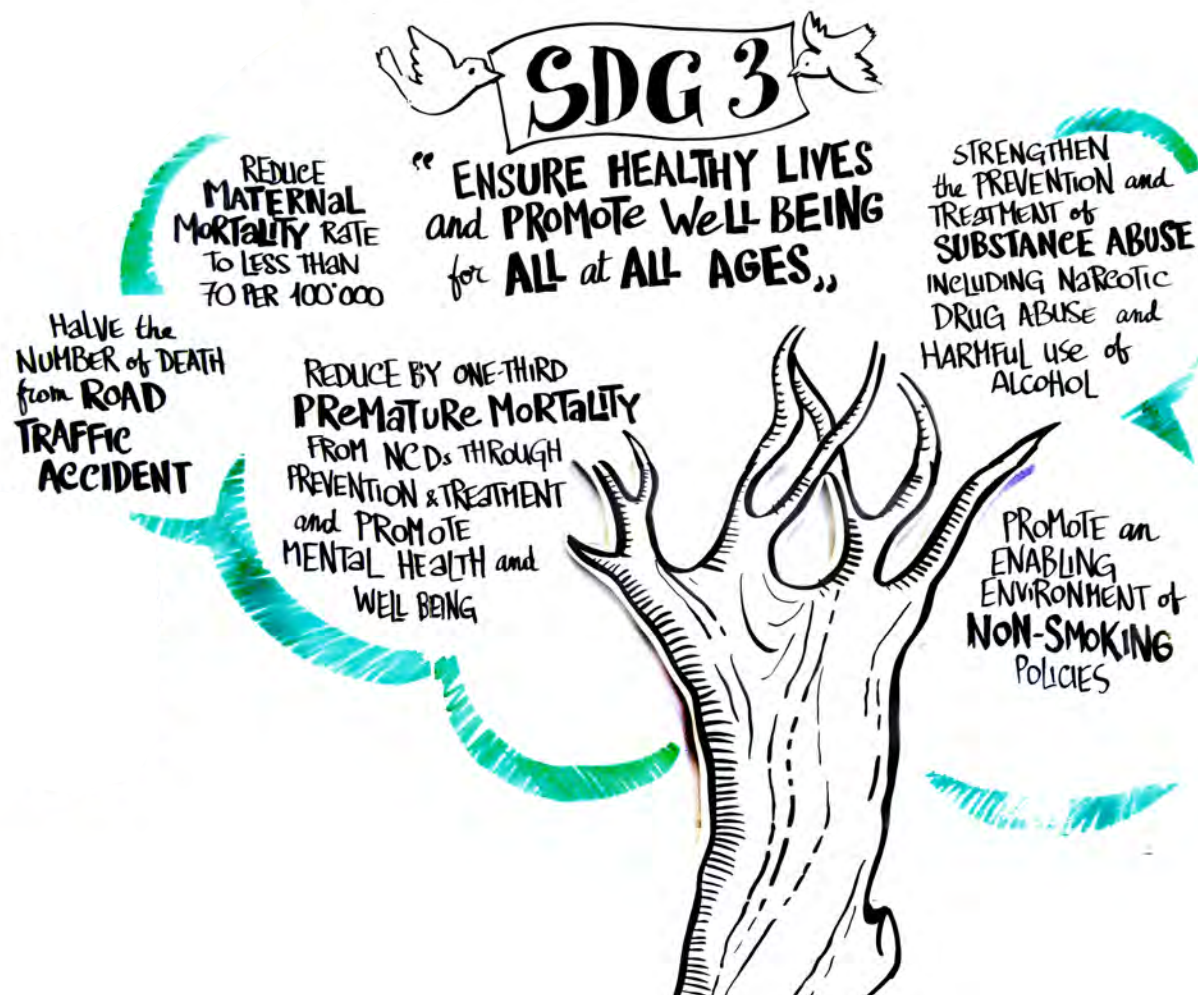 SDG 3
“ ENSURE HEALTHY LIVES
and PROMOTE WELL BEING
for ALL at ALL AGES„
REDUCE
MATERNAL
MORTALITY RATE
TO LESS THAN
70 PER 100'000
HALVE the
NUMBER of DEATH
from ROAD
TRAFFIC
ACCIDENT
REDUCE BY ONE-THIRD
PREMATURE MORTALITY
FROM NCDs THROUGH
PREVENTION & TREATMENT
and PROMOTE
MENTAL HEALTH and
WELL BEING
STRENGTHEN
the PREVENTION and
TREATMENT of
SUBSTANCE ABUSE
INCLUDING NARCOTIC
DRUG ABUSE and
HARMFUL USE of
ALCOHOL
PROMOTE an
ENABLING
ENVIRONMENT of
NON-SMOKING
POLICIES